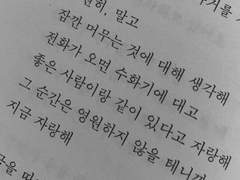 말고
잠깐 머무는 것에 대해 생각해
전화가 오면 수화기에 대고
좋은 사람이랑 같이 있다고 자랑해
그 순간은 영원하지 않을 테니까
지금 자랑해